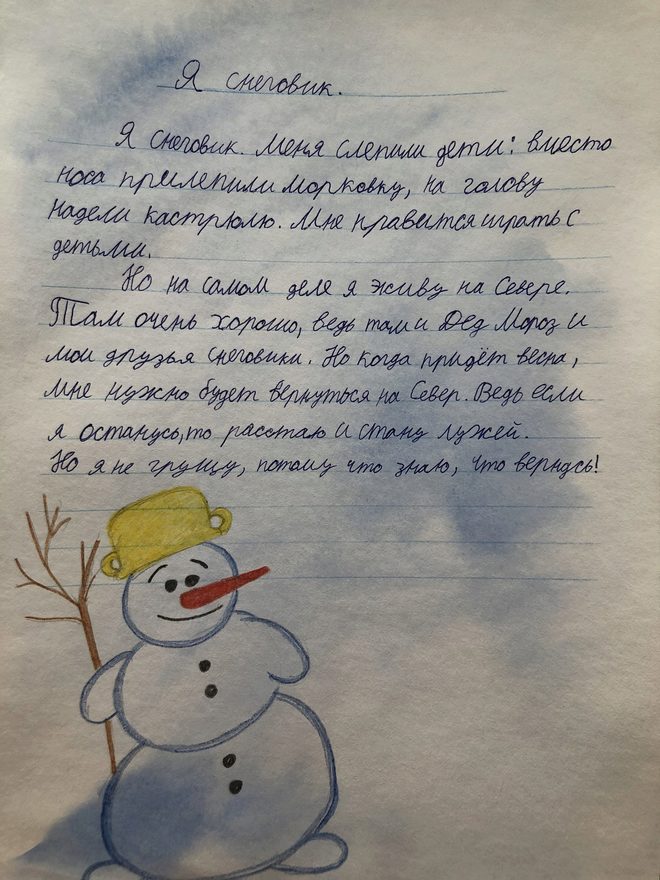 Я снеговик.
Я снеговик. Меня слепили дети: вместо
носа прилепили морковку, на голову
надели кастрюлю. Мне нравится играть с
детьми.
Но на самом деле я живу на Севере.
Там очень хорошо, ведь там и Дед Мороз и
мои друзья снеговики. Но когда придёт весна,
мне нужно будет вернуться на Север. Ведь если
я останусь, то расстаю и стану лужей.
Но я не грущу, потому что знаю, что вернусь!